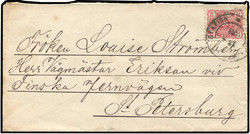 Fröken Louise Stromberg
Herr Tågmästar Erikson vid
Finska Jernvägen
St Petersburg